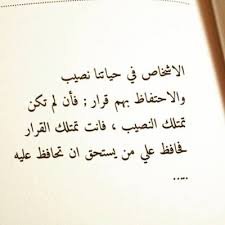 الاشخاص في حياتنا نصيب
والاحتفاظ بهم قرار ; فأن لم تكن
تمتلك النصيب ، فانت تمتلك القرار
فحافظ علي من يستحق ان تحافظ عليه
.....